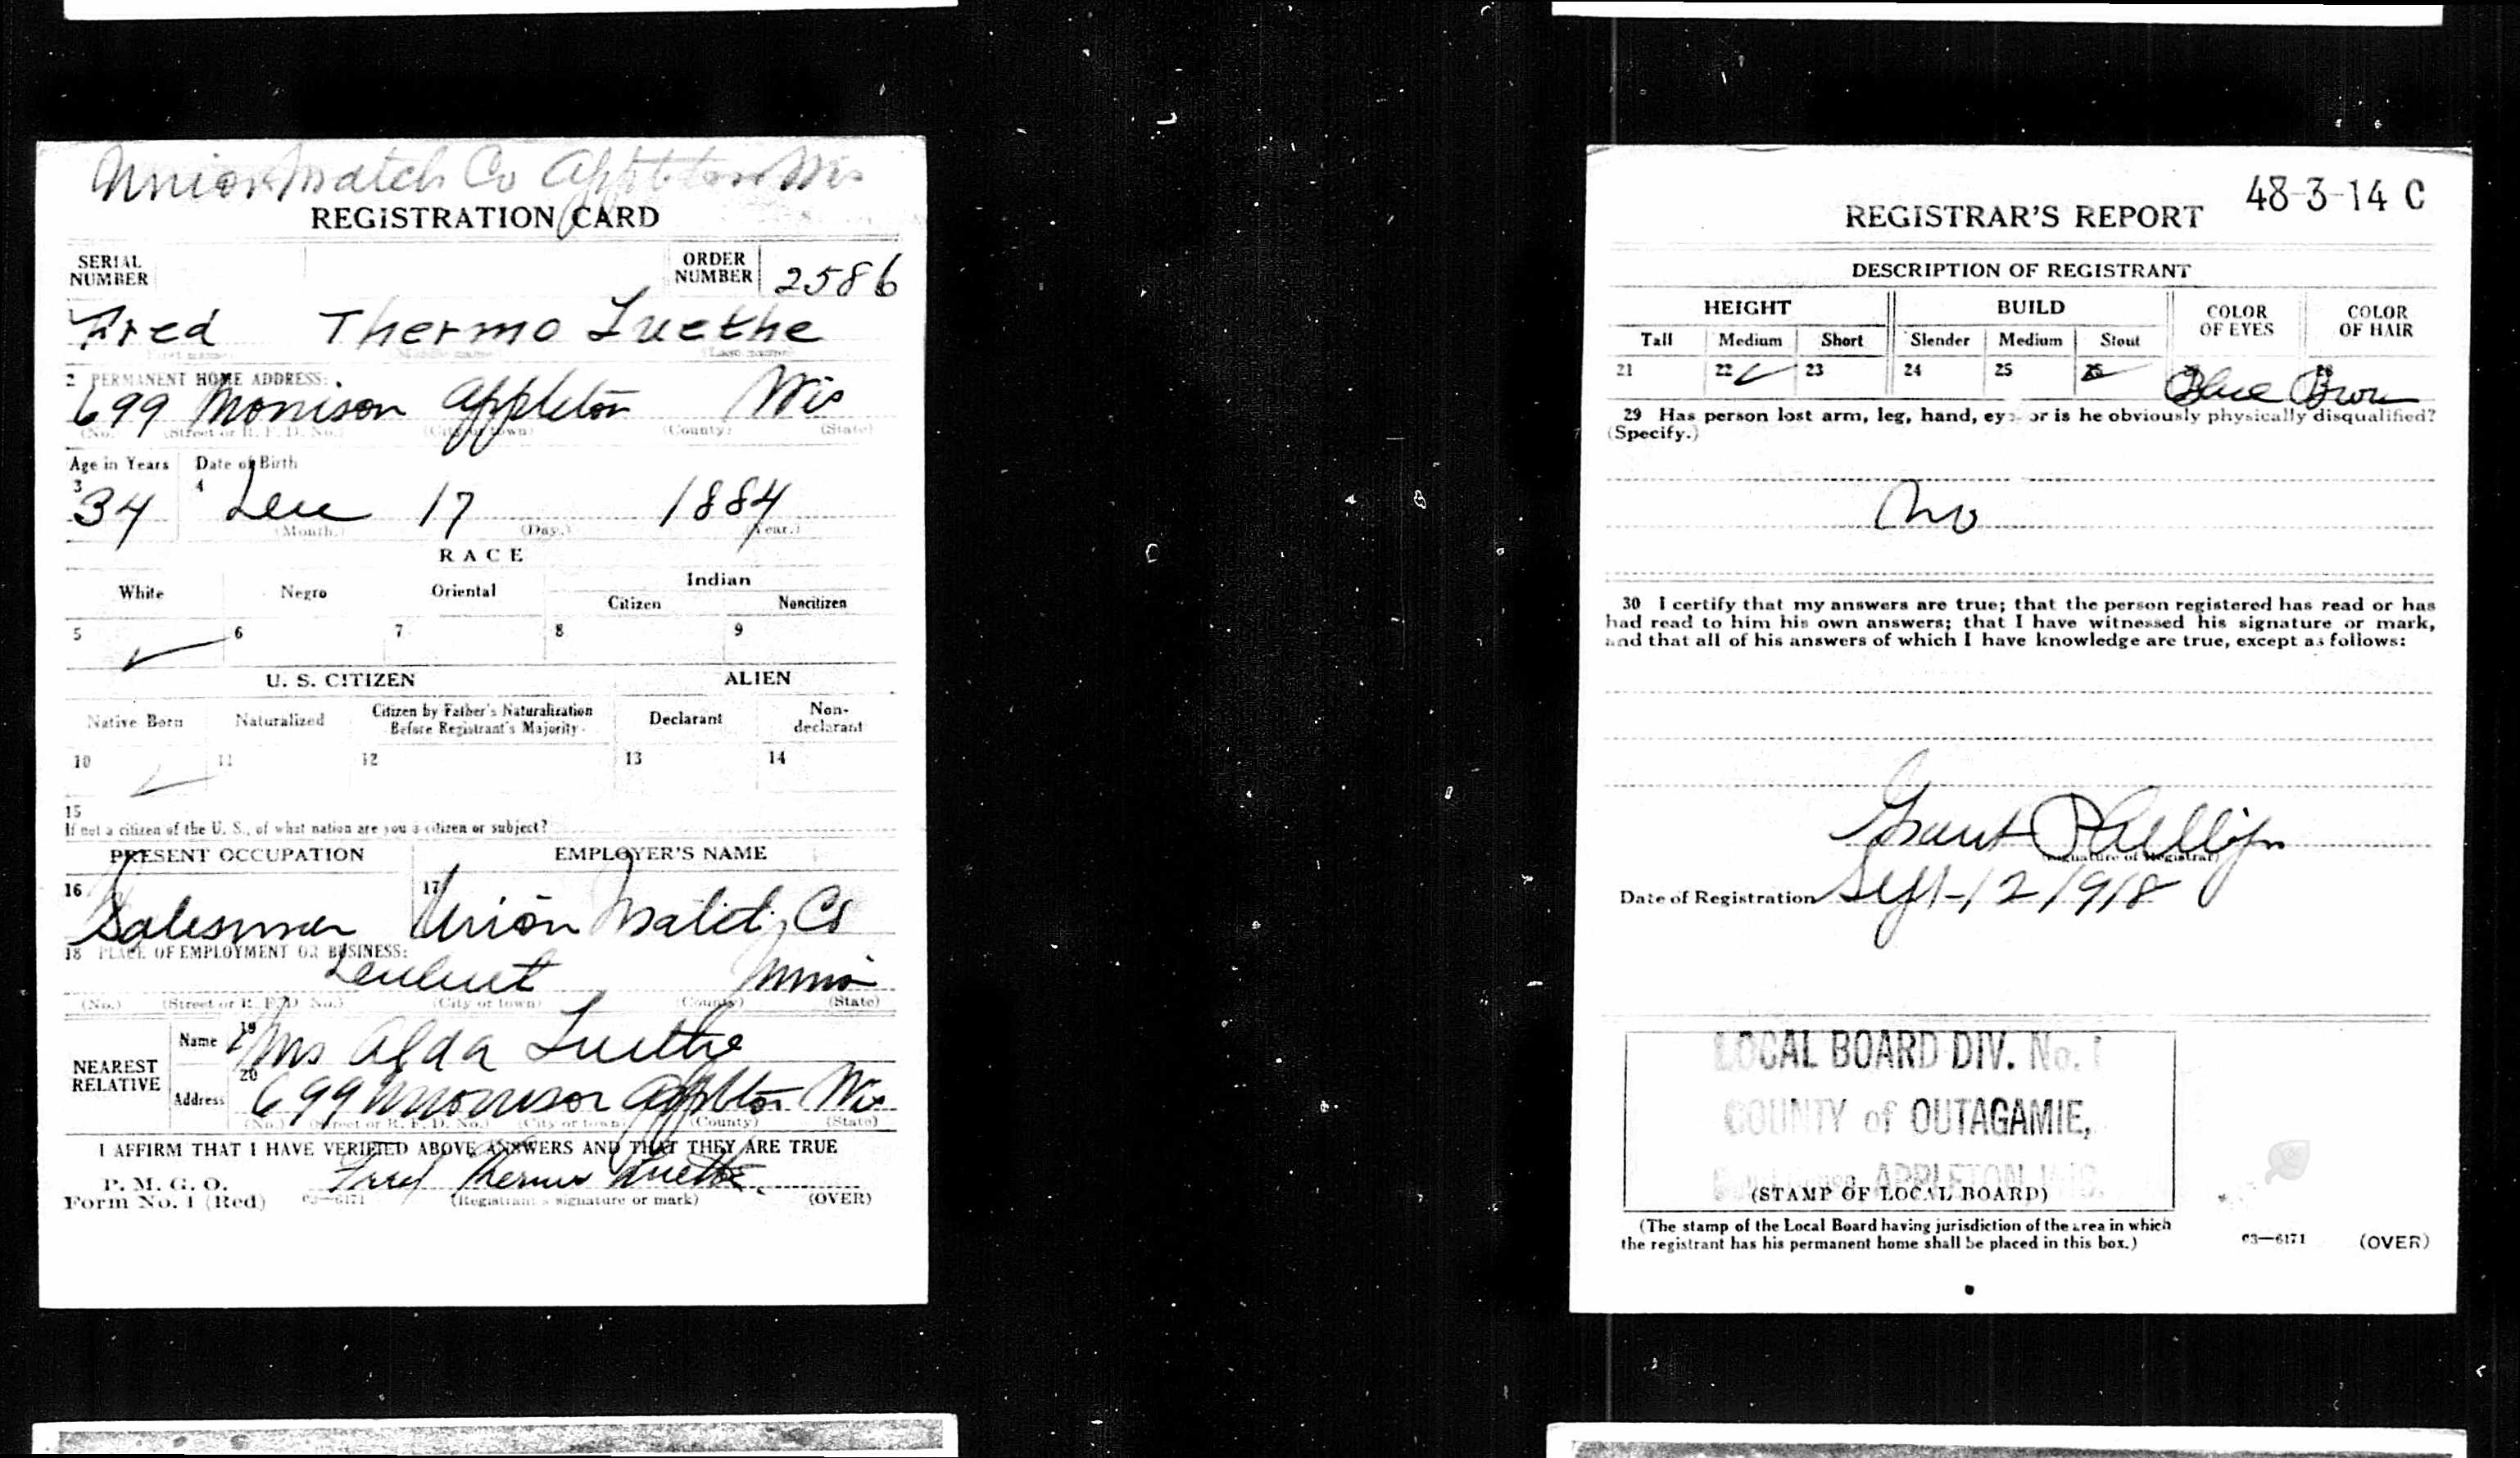 Union Match Co Appleton Wis
REGISTRATION CARD
SERIAL NUMBER
ORDER NUMBER 2586
Fred Thermo Luethe
(First name) (Middle name) (Last name)
2 PERMANENT HOME ADDRESS:
699 Morrison Appleton Wis
(No.) (Street or R. F. D. No.) (City or town) (County) (State)
Age in Years Date of Birth
3 34 4 17 1884
(Month.) (Day.) (Year.)
RACE
White Negro Oriental Indian
Citizen Noncitizen
5 ✓ 6 7 8 9
U. S. CITIZEN ALIEN
Native Born Naturalized Citizen by Father's Naturalization Before Registrant's Majority Declarant Non-declarant
10 ✓ 11 12 13 14
15
If not a citizen of the U. S., of what nation are you a citizen or subject?
PRESENT OCCUPATION EMPLOYER'S NAME
16 Salesman 17 Union Match Co
18 PLACE OF EMPLOYMENT OR BUSINESS:
(No.) (Street or R. F. D. No.) (City or town) (County) (State)
NEAREST RELATIVE
Name 19 Mrs Alda Luethe
Address 20 699 Morrison Appleton Wis
(No.) (Street or R. F. D. No.) (City or town) (County) (State)
I AFFIRM THAT I HAVE VERIFIED ABOVE ANSWERS AND THAT THEY ARE TRUE
P. M. G. O.
Form No. 1 (Red) 03—6171 Fred Thermo Luethe (Registrant's signature or mark) (OVER)
48-3-14 C
REGISTRAR'S REPORT
DESCRIPTION OF REGISTRANT
HEIGHT BUILD COLOR OF EYES COLOR OF HAIR
Tall Medium Short Slender Medium Stout
21 22 ✓ 23 24 25 26 ✓ 27 Blue 28 Brown
29 Has person lost arm, leg, hand, eye, or is he obviously physically disqualified?
(Specify.)
No
30 I certify that my answers are true; that the person registered has read or has
had read to him his own answers; that I have witnessed his signature or mark,
and that all of his answers of which I have knowledge are true, except as follows:
Grant Phillips
(Signature of Registrar)
Date of Registration Sept-12 1918
LOCAL BOARD DIV. No. 1
COUNTY of OUTAGAMIE,
APPLETON, WIS.
(STAMP OF LOCAL BOARD)
(The stamp of the Local Board having jurisdiction of the area in which
the registrant has his permanent home shall be placed in this box.)
03—6171 (OVER)